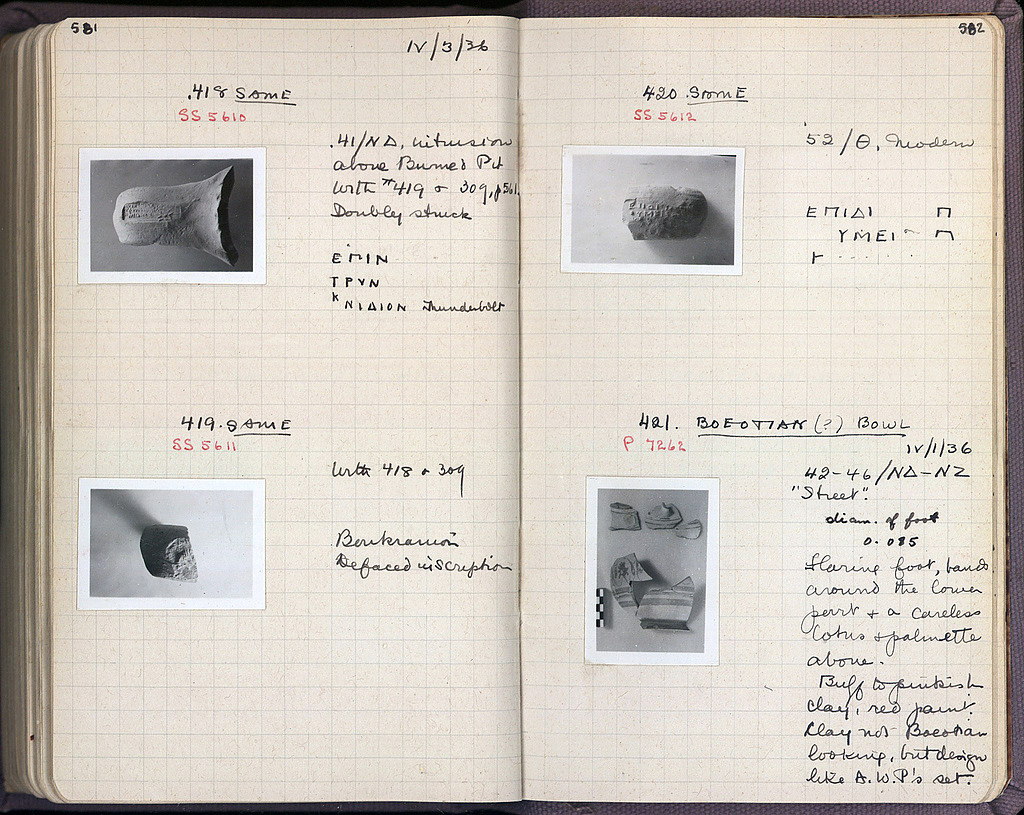 581
IV/3/36
.418 SAME
SS 5610
.41/ΝΔ, intrusion
above Burned Pit
with #419 & 309, p561.
Doubly struck
ΕΠΙΝ
ΤΡΥΝ
ΚΝΙΔΙΟΝ Thunderbolt
419. SAME
SS 5611
with 418 & 309
Boukranion
Defaced inscription
582
420. SAME
SS 5612
52/Θ, Modern
ΕΠΙΔΙ Π
ΥΜΕΙ Π
421. BOEOTIAN (?) BOWL
P 7262
IV/1/36
42-46/ΝΔ-ΝΖ
"Street".
diam. of foot
0.085
Flaring foot, bands
around the lower
part & a careless
lotus & palmette
above.
Buff to pinkish
clay, red paint.
Clay not Boeotian
looking, but design
like A.W.P's set.